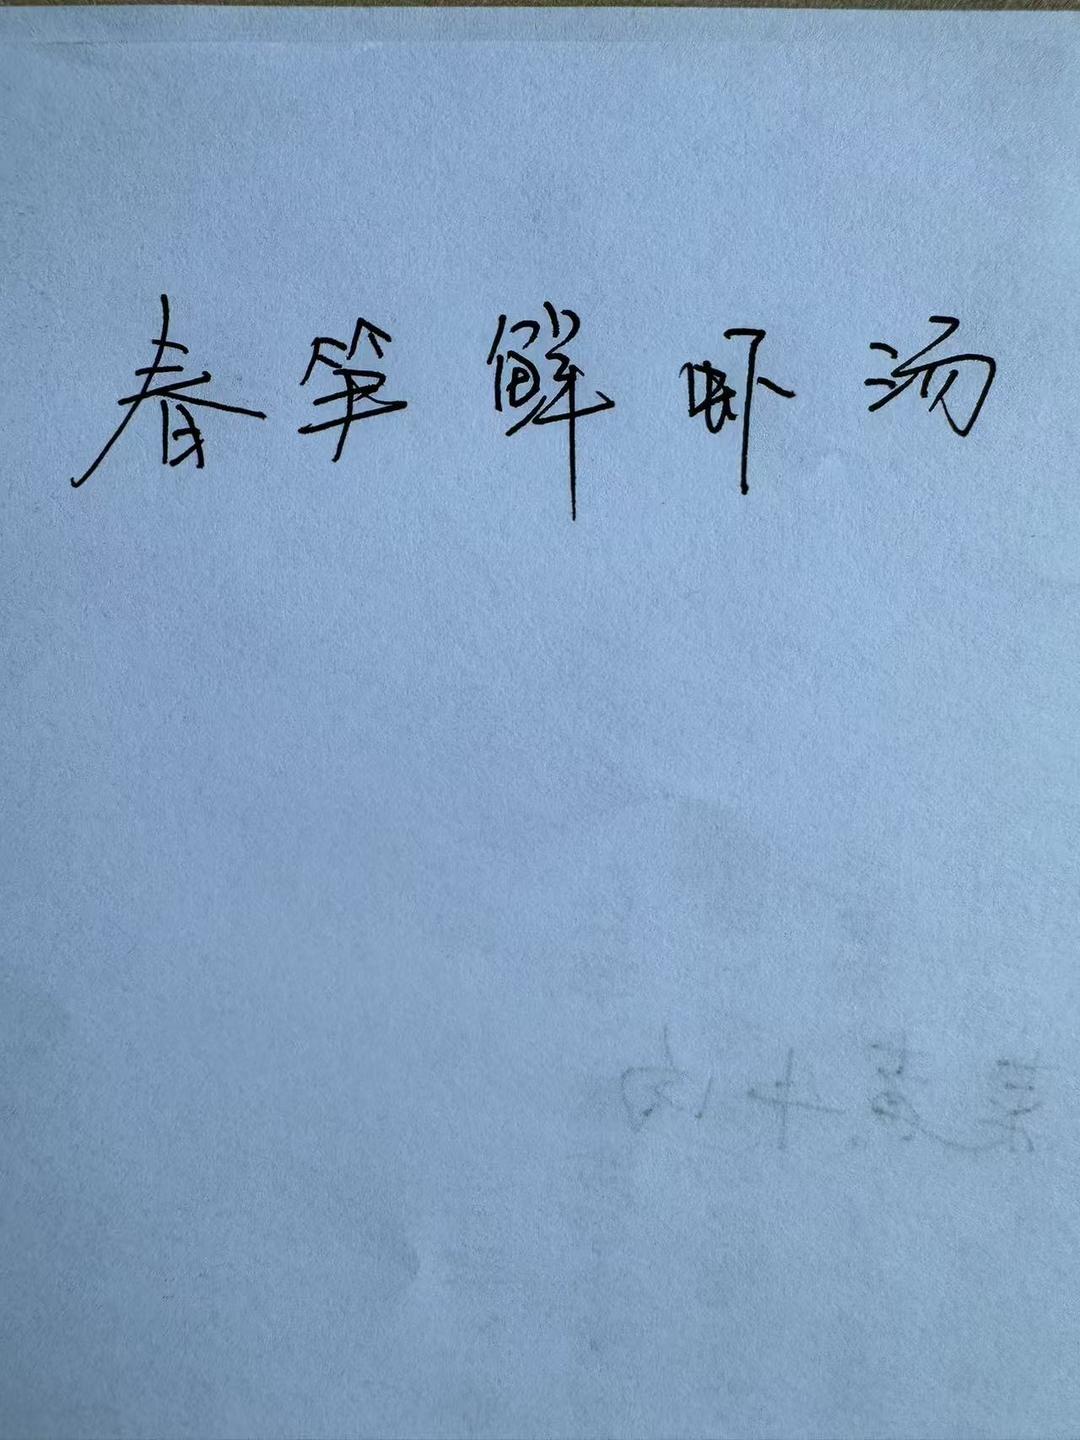 春笋鲜虾汤